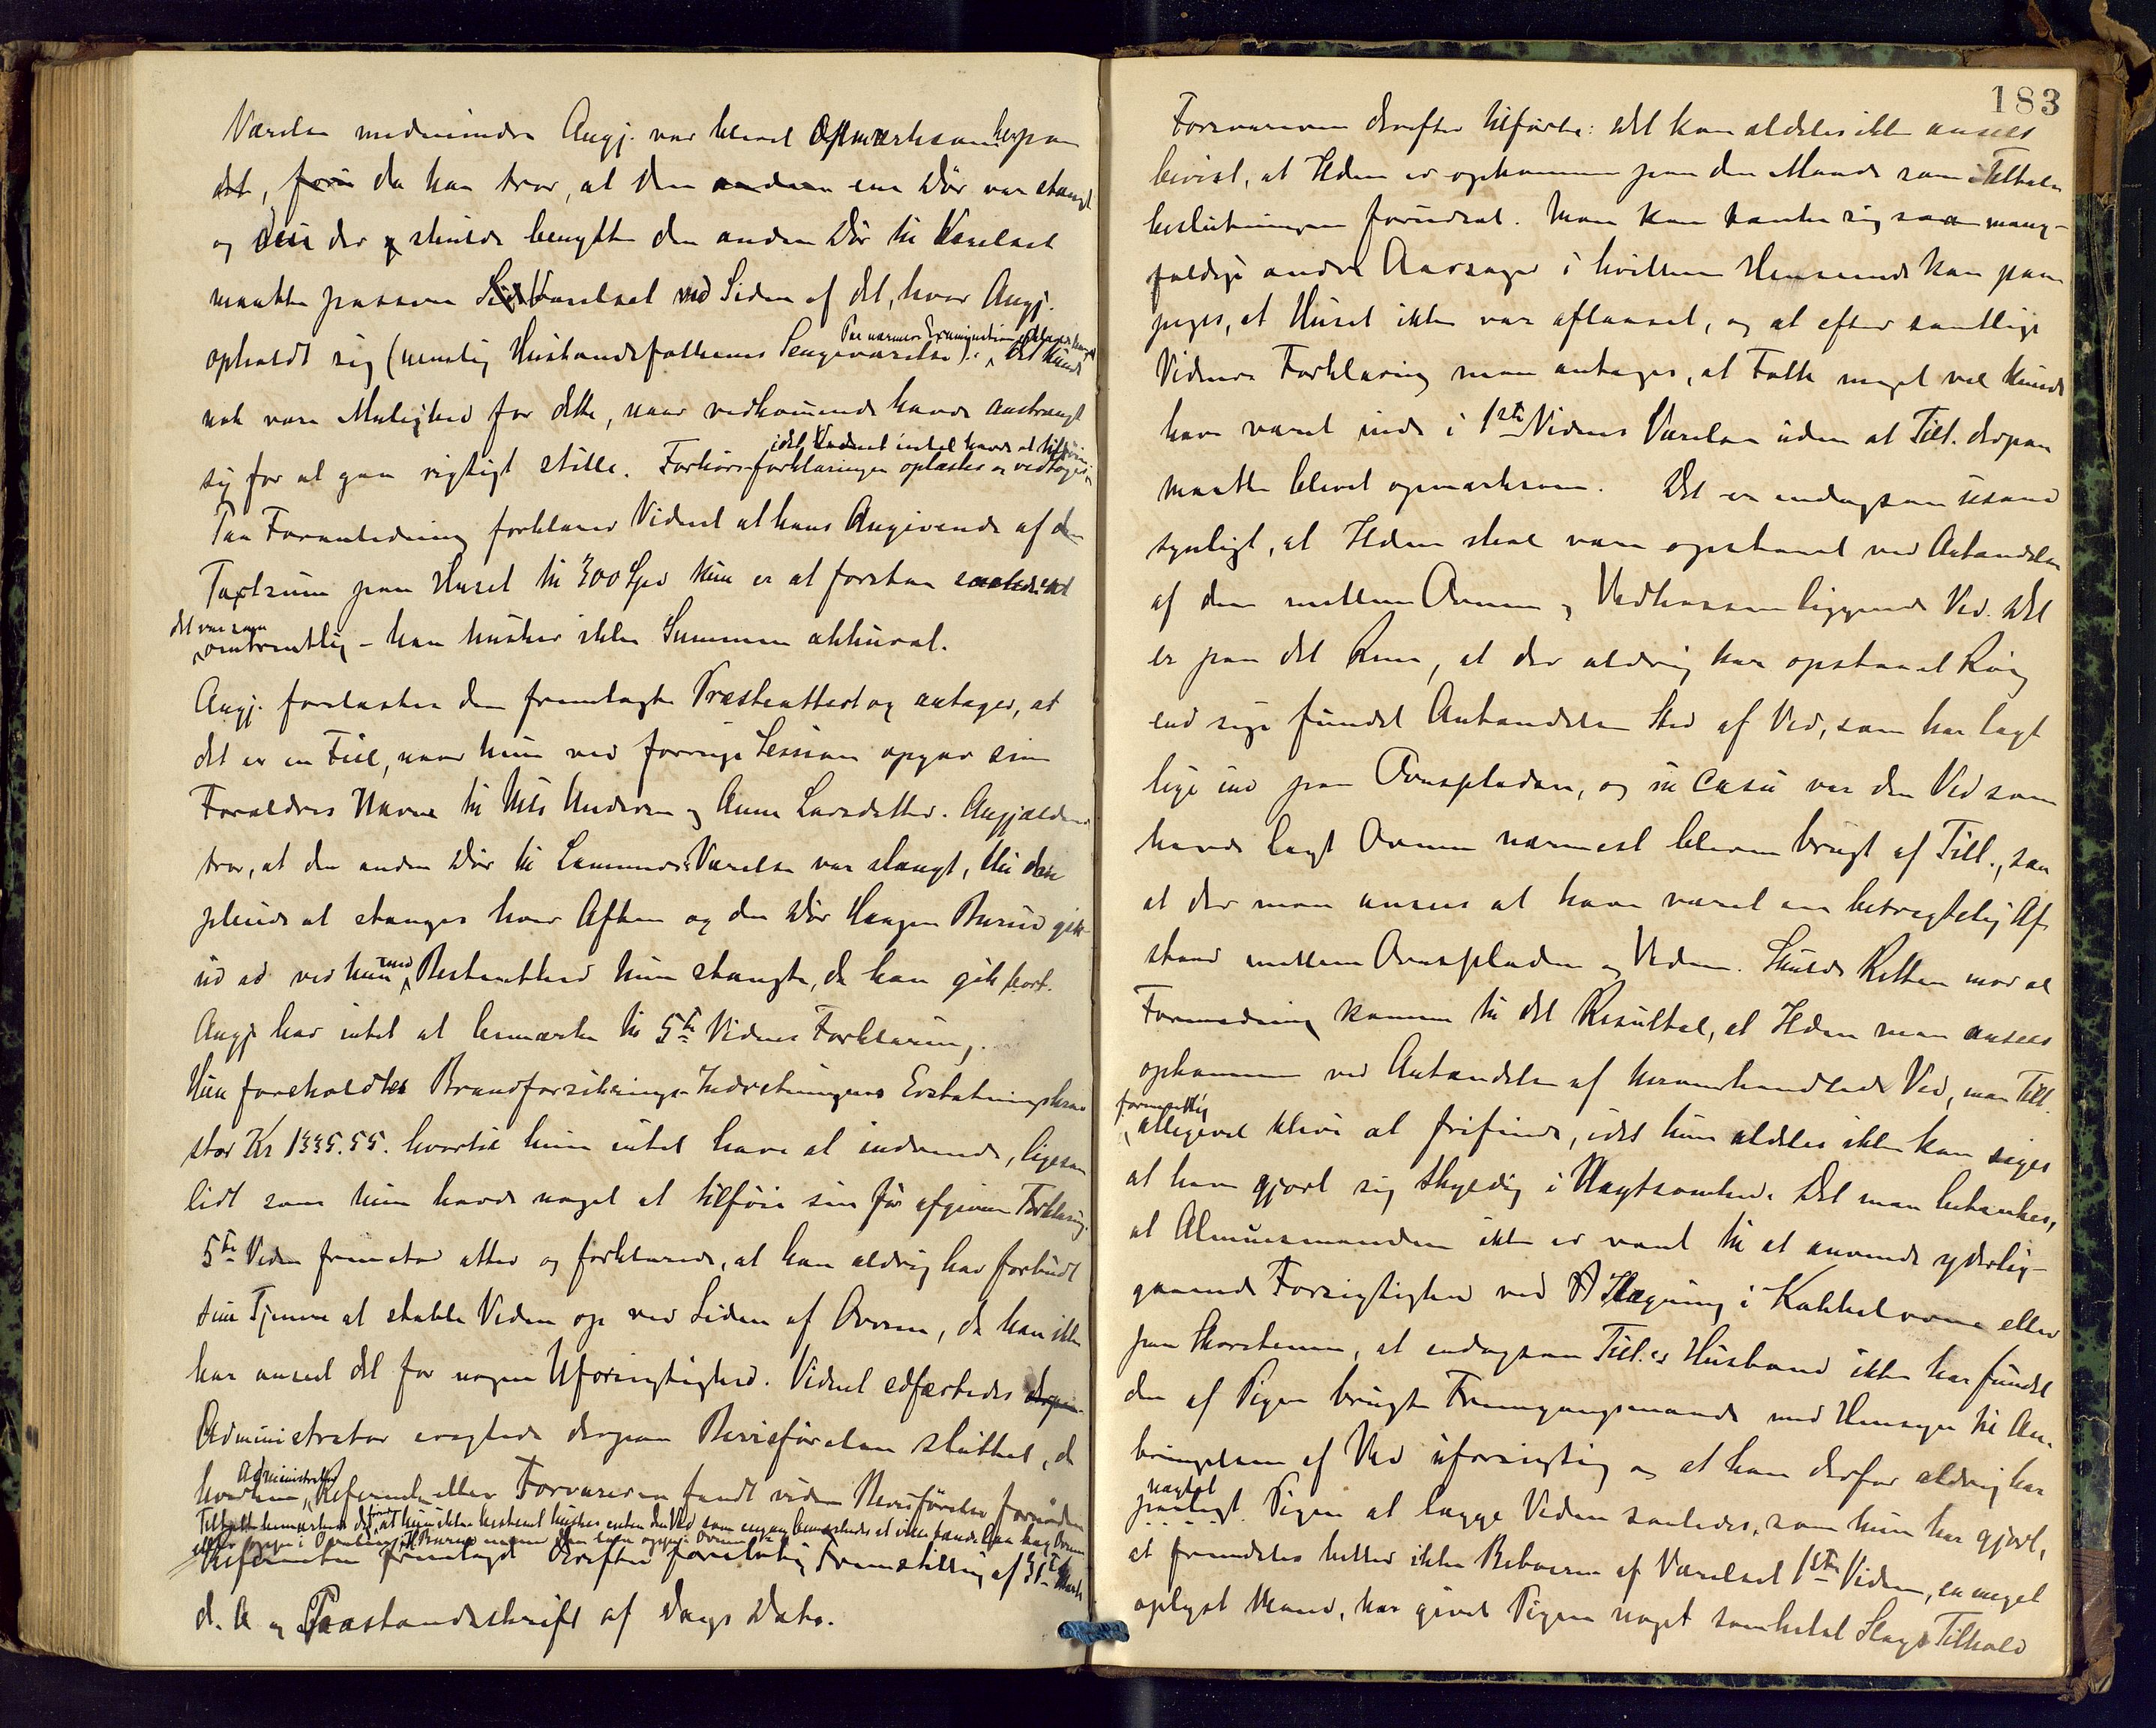 Værelse medmindre Angj. var blevet opmærksom herpaa
det, da han tror, at den ene Dör var stængt
og der skulde benytte den anden Dör til Værelset
maatte passere Værelset ved Siden af det, hvor Angj.
opholdt sig (nemlig Husbondsfolkenes Sengeværelse). Paa nærmere Examination Det kunde
nok være Mulighed for dette, naar vedkommende havde anstrængt
sig for at gaa rigtigt stille. Forhörsforklaringen oplæstes og vedtoges, idet Vidnet intet havde at tilföie
Paa Foranledning forklarer Vidnet at hans Angivende af den
Taxtsum paa Huset til 300 Spd kun er at forstaa saaledes at
det var saa omtrentlig - han husker ikke Summen akkurat.
Angj. forelæstes den fremlagte Præsteattest og antager, at
det er en Feil, naar hun ved forrige Session opgav sine
Forældres Navne til Nils Andersen og Anne Larsdatter. Angjældende
tror, at den anden Dör til Værelse var stængt, thi den
pleiede at stænges hver Aften og den Dör Haagen Burud gik
ud ad ved hun med Bestemthed hun stængte, da han gik bort.
Angj. har intet at bemærke til 5te Vidnes Forklaring.
Hun foreholdtes Brandforsikrings-Indretningens Erstatningskrav
stor Kr 1335.55. hvortil hun intet havde at indvende, ligesaa
lidt som hun havde noget at tilföie sin för afgivne Forklaring.
5te Vidne fremstod atter og forklarede, at han aldrig har forbudt
sine Tjenere at stable Veden op ved Siden af Ovnen, da han ikke
har anseet det for nogen Uforsigtighed. Vidnet edfæstedes
Administrator eragtede derpaa Bevisförelsen sluttet, da
hverken Administrator, Referenten eller Forsvareren fandt videre Bevisförelse fornöden
Tiltalte bemærkede at hun ikke bestemt husker enten den Ved som
Referenten fremlagde derefter foreløbig Fremstilling af 31te Marts
d. A og Paastandsskrift af Dags Dato.
183
Forsvareren derefter tilförte: Det kan aldeles ikke ansees
bevist, at Ilden er opkommen paa den Maade som i Tiltale-
beslutningen forudsat. Man kan tænke sig saa mang-
foldige andre Aarsager i hvilken Henseende kan paa
peges, at Huset ikke var aflaaset, og at efter samtlige
Vidners Forklaring maa antages, at Folk meget vel kunde
have været inde i 1ste Vidnes Værelse uden at Tilt. derpaa
maatte blevet opmærksom. Det er endogsaa usand
synligt, at Ilden skal være opstaaet ved Antændelse
af den mellem Ovnen og Vedkassen liggende Ved. Det
er paa det Rene, at der aldrig har opstaaet Rög
end sige fundet Antændelse Sted af Ved, som har lagt
lige ind paa Ovnspladen, og in casu var den Ved som
havde lagt Ovnen nærmest bleven brugt af Tilt., saa
at der maa ansees at have været en betragtelig Af-
stand mellem Ovnspladen og Veden. Skulde Retten mod al
Formodning komme til det Resultat, at Ilden maa ansees
opkommen ved Antændelse af heromhandlede Ved, maa Tilt.
formentlig alligevel blive at frifinde, idet hun aldeles ikke kan siges
at have gjort sig skyldig i Uagtsomhed. Det maa betænkes,
at Almuesmanden ikke er vant til at anvende yderlig-
gaaende Forsigtighed ved Ildlægning i Kakkelovne eller
paa Skorstenen, at endogsaa Tilt.s Husbond ikke har fundet
den af Pigen brugte Fremgangsmaade med Hensyn til An-
bringelsen af Ved uforsigtig og at han derfor aldrig har
nægtet Pigen at lægge Veden saaledes, som hun har gjort,
at fremdeles heller ikke Beboeren af Værelset 1ste Vidne, en meget
oplyst Mand, har givet Pigen noget somhelst Slags Tilhold